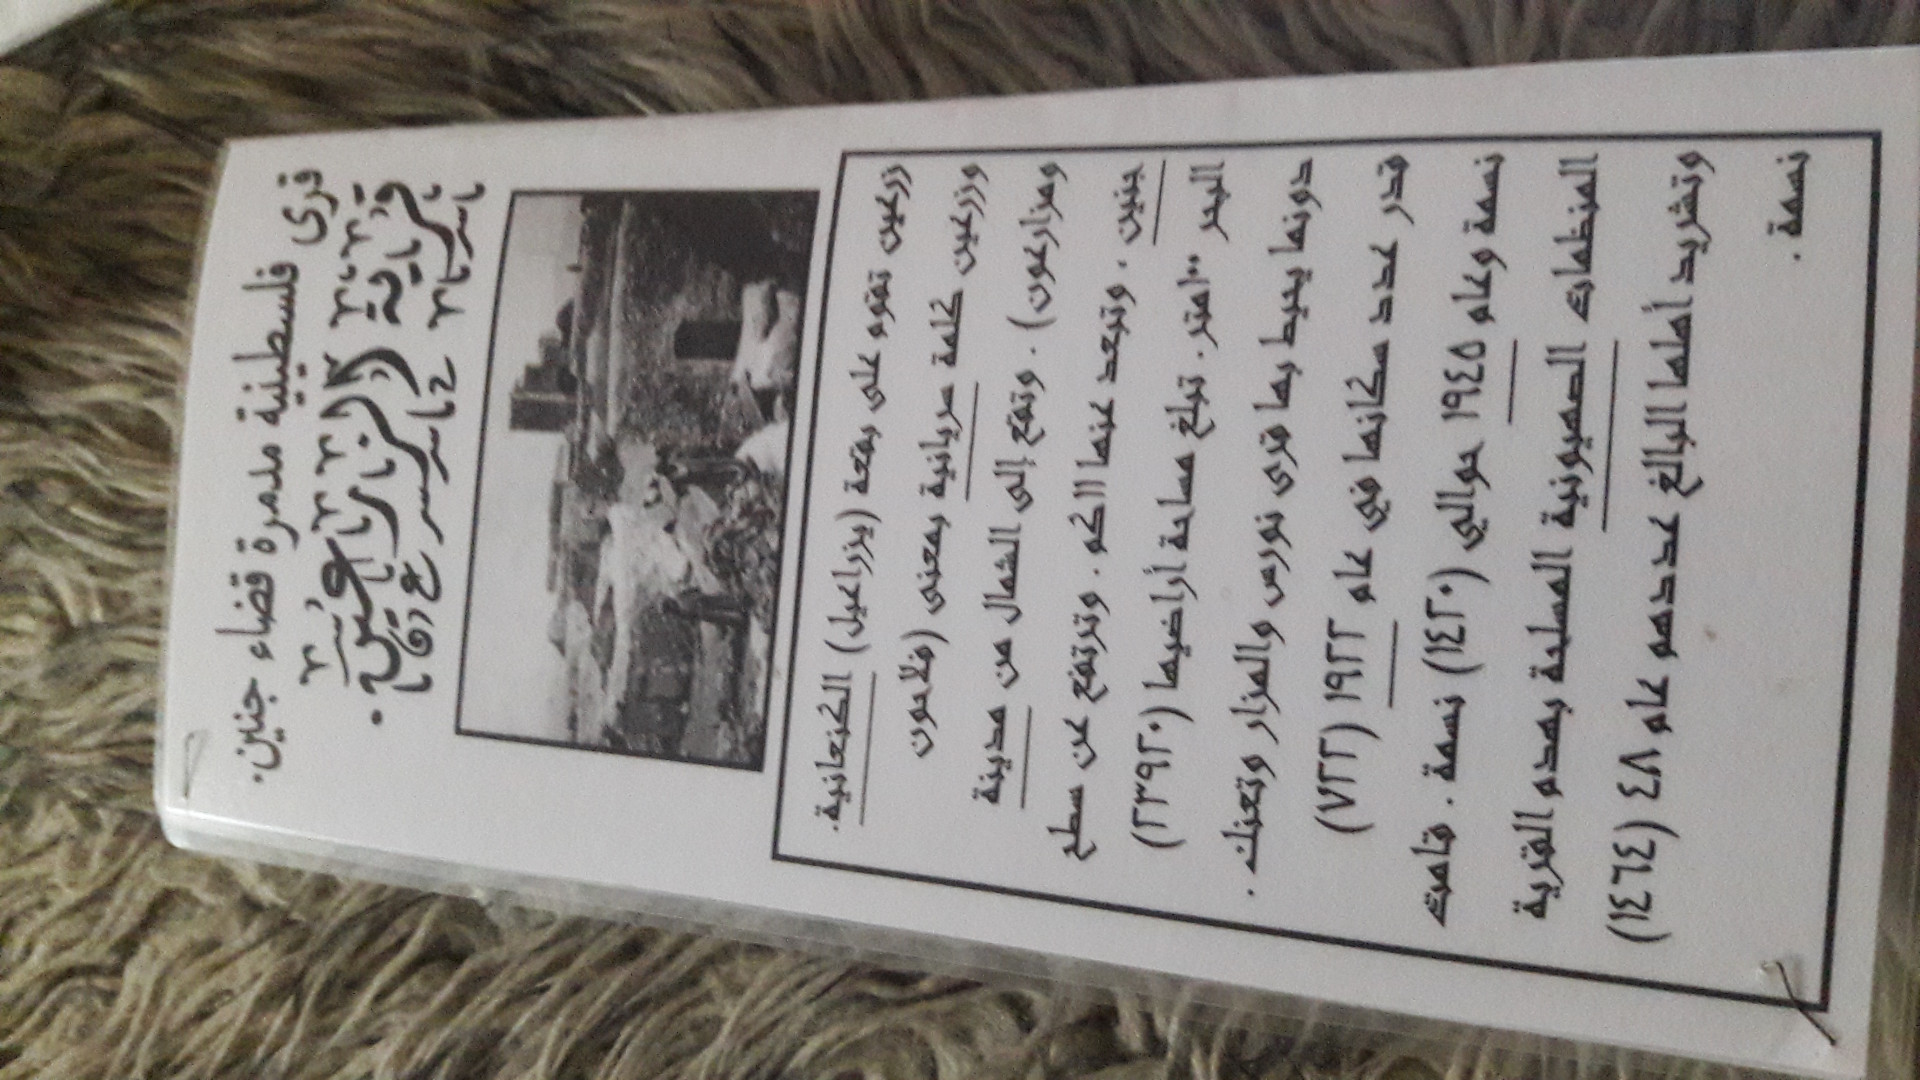 قرى فلسطينية مدمرة قضاء جنين.
قرية الزراعين.
زرعين تقوم على بقعة (يزراعيل) الكنعانية.
وزرعين كلمة سريانية بمعنى (فلاحون
ومزارعون). وتقع إلى الشمال من مدينة
جنين. وتبعد عنها ١١كم. وترتفع عن سطح
البحر ١٠٠متر. تبلغ مساحة أراضيها (٢٣٩٢٠)
دونما يحيط بها قرى نورس والمزار وتعنك.
قدر عدد سكانها في عام ١٩٢٢ (٧٢٢)
نسمة وعام ١٩٤٥ حوالي (١٤٢٠) نسمة. قامت
المنظمات الصهيونية المسلحة بهدم القرية
وتشريد أهلها البالغ عددهم عام ٤٨ (١٤٦٤)
نسمة.